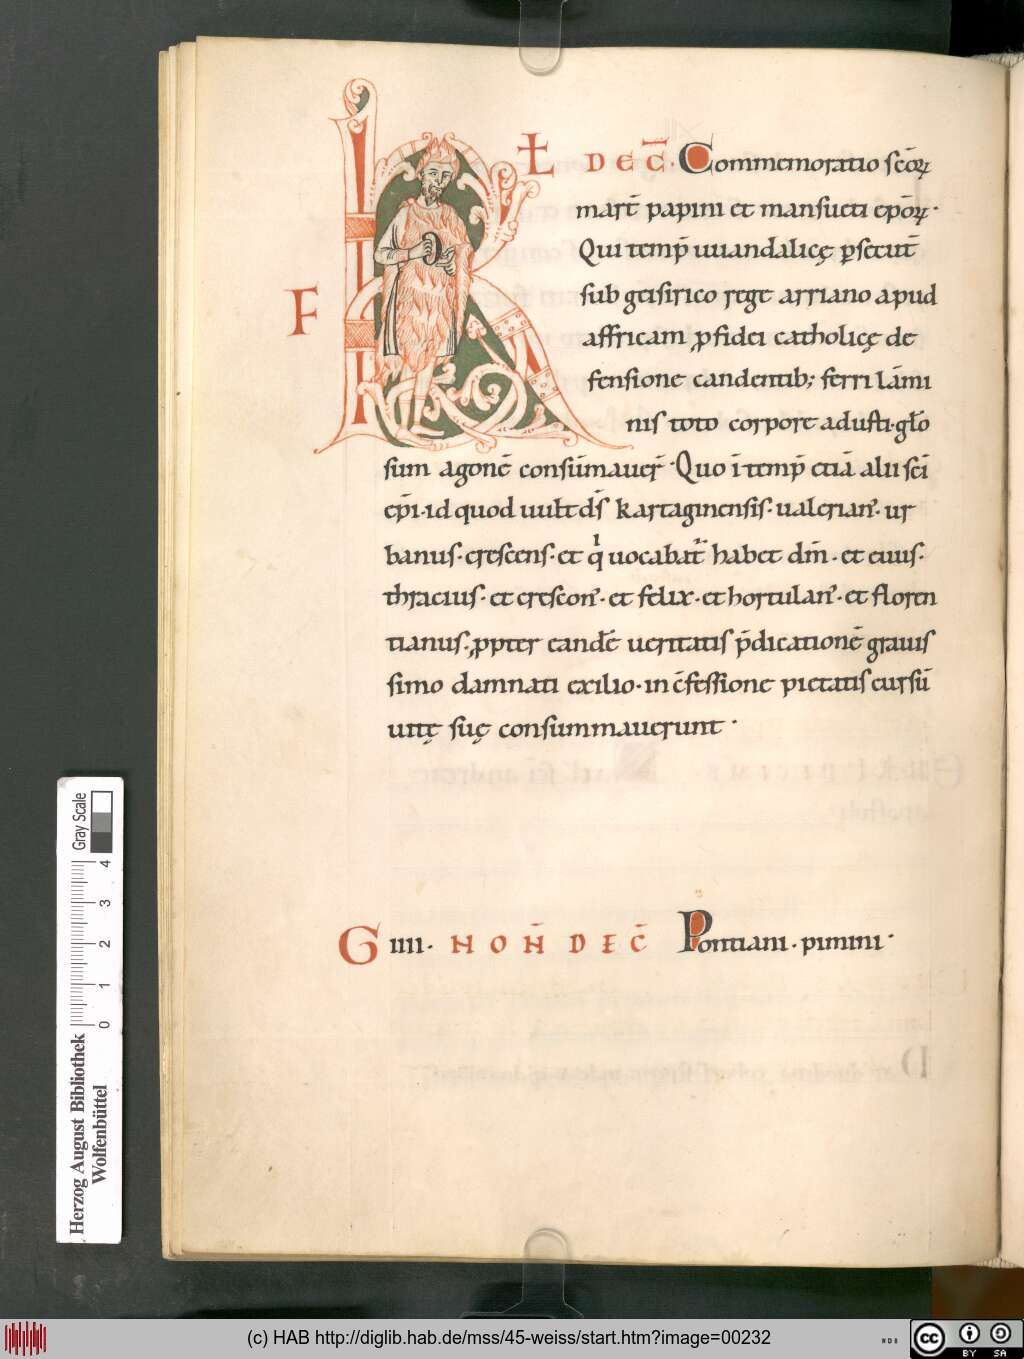 F KŁ DEC̄. Commemoratio sc̄oꝝ
mart̄ papini et mansueti ep̄oꝝ.
Qui temp̄ uuandalicę ꝑsecut̄
sub geisirico rege arriano apud
affricam ꝓ fidei catholicę de
fensione candentib; ferri lāmi
nis toto corpore adusti. gl̄o
sum agonē consūmauer̄. Quo ī temp̄ etiā alii sc̄i
ep̄i. id quod uult ds̄ kartaginensis. ualerian᾽. ur
banus. crescens. et q̄ uocabat᾽ habet dm̄. et eius.
thracius. et crescon᾽. et felix. et hortulan᾽. et floren
tianus. ꝓpter eandē ueritatis p̄dicationē grauis
simo damnati exilio. in c̄fessione pietatis cursū
uitę suę consummauerunt.
G IIII. NON̄ DEC̄ Pontiani. pimini.
Gray Scale
0 1 2 3 4
Herzog August Bibliothek
Wolfenbüttel
(c) HAB http://diglib.hab.de/mss/45-weiss/start.htm?image=00232
cc BY SA